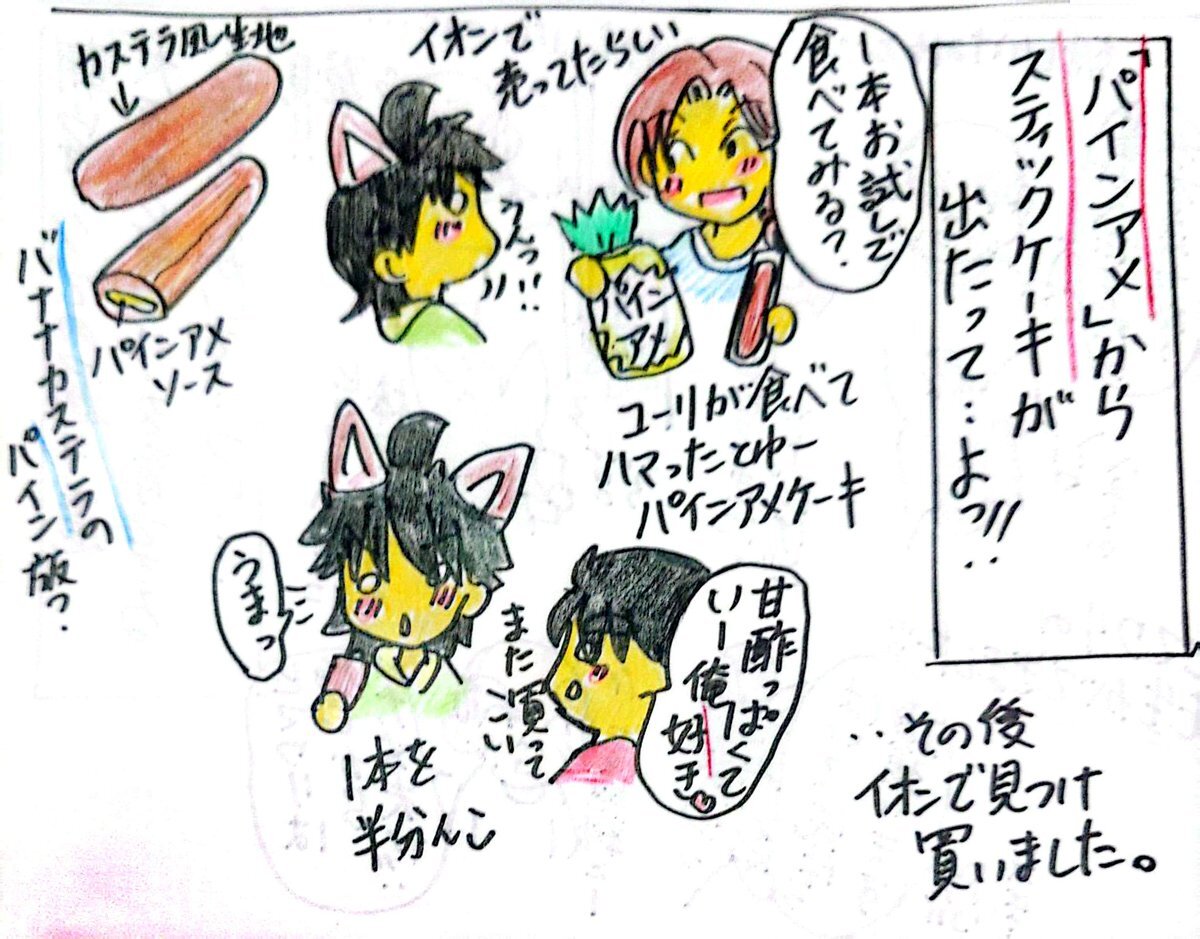 「パインアメ」から
スティックケーキが
出たって…よっ!!
1本お試しで
食べてみる?
イオンで
売ってたらしい
パイン
アメ
えっ!!
カステラ風生地
パインアメ
ソース
バナナカステラの
パイン版っ.
ユーリが食べて
ハマったとゆー
パインアメケーキ
甘酢っぱくて
いー俺
好き
また買って
こい
うまっ
1本を
半分んこ
..その後
イオンで見つけ
買いました。